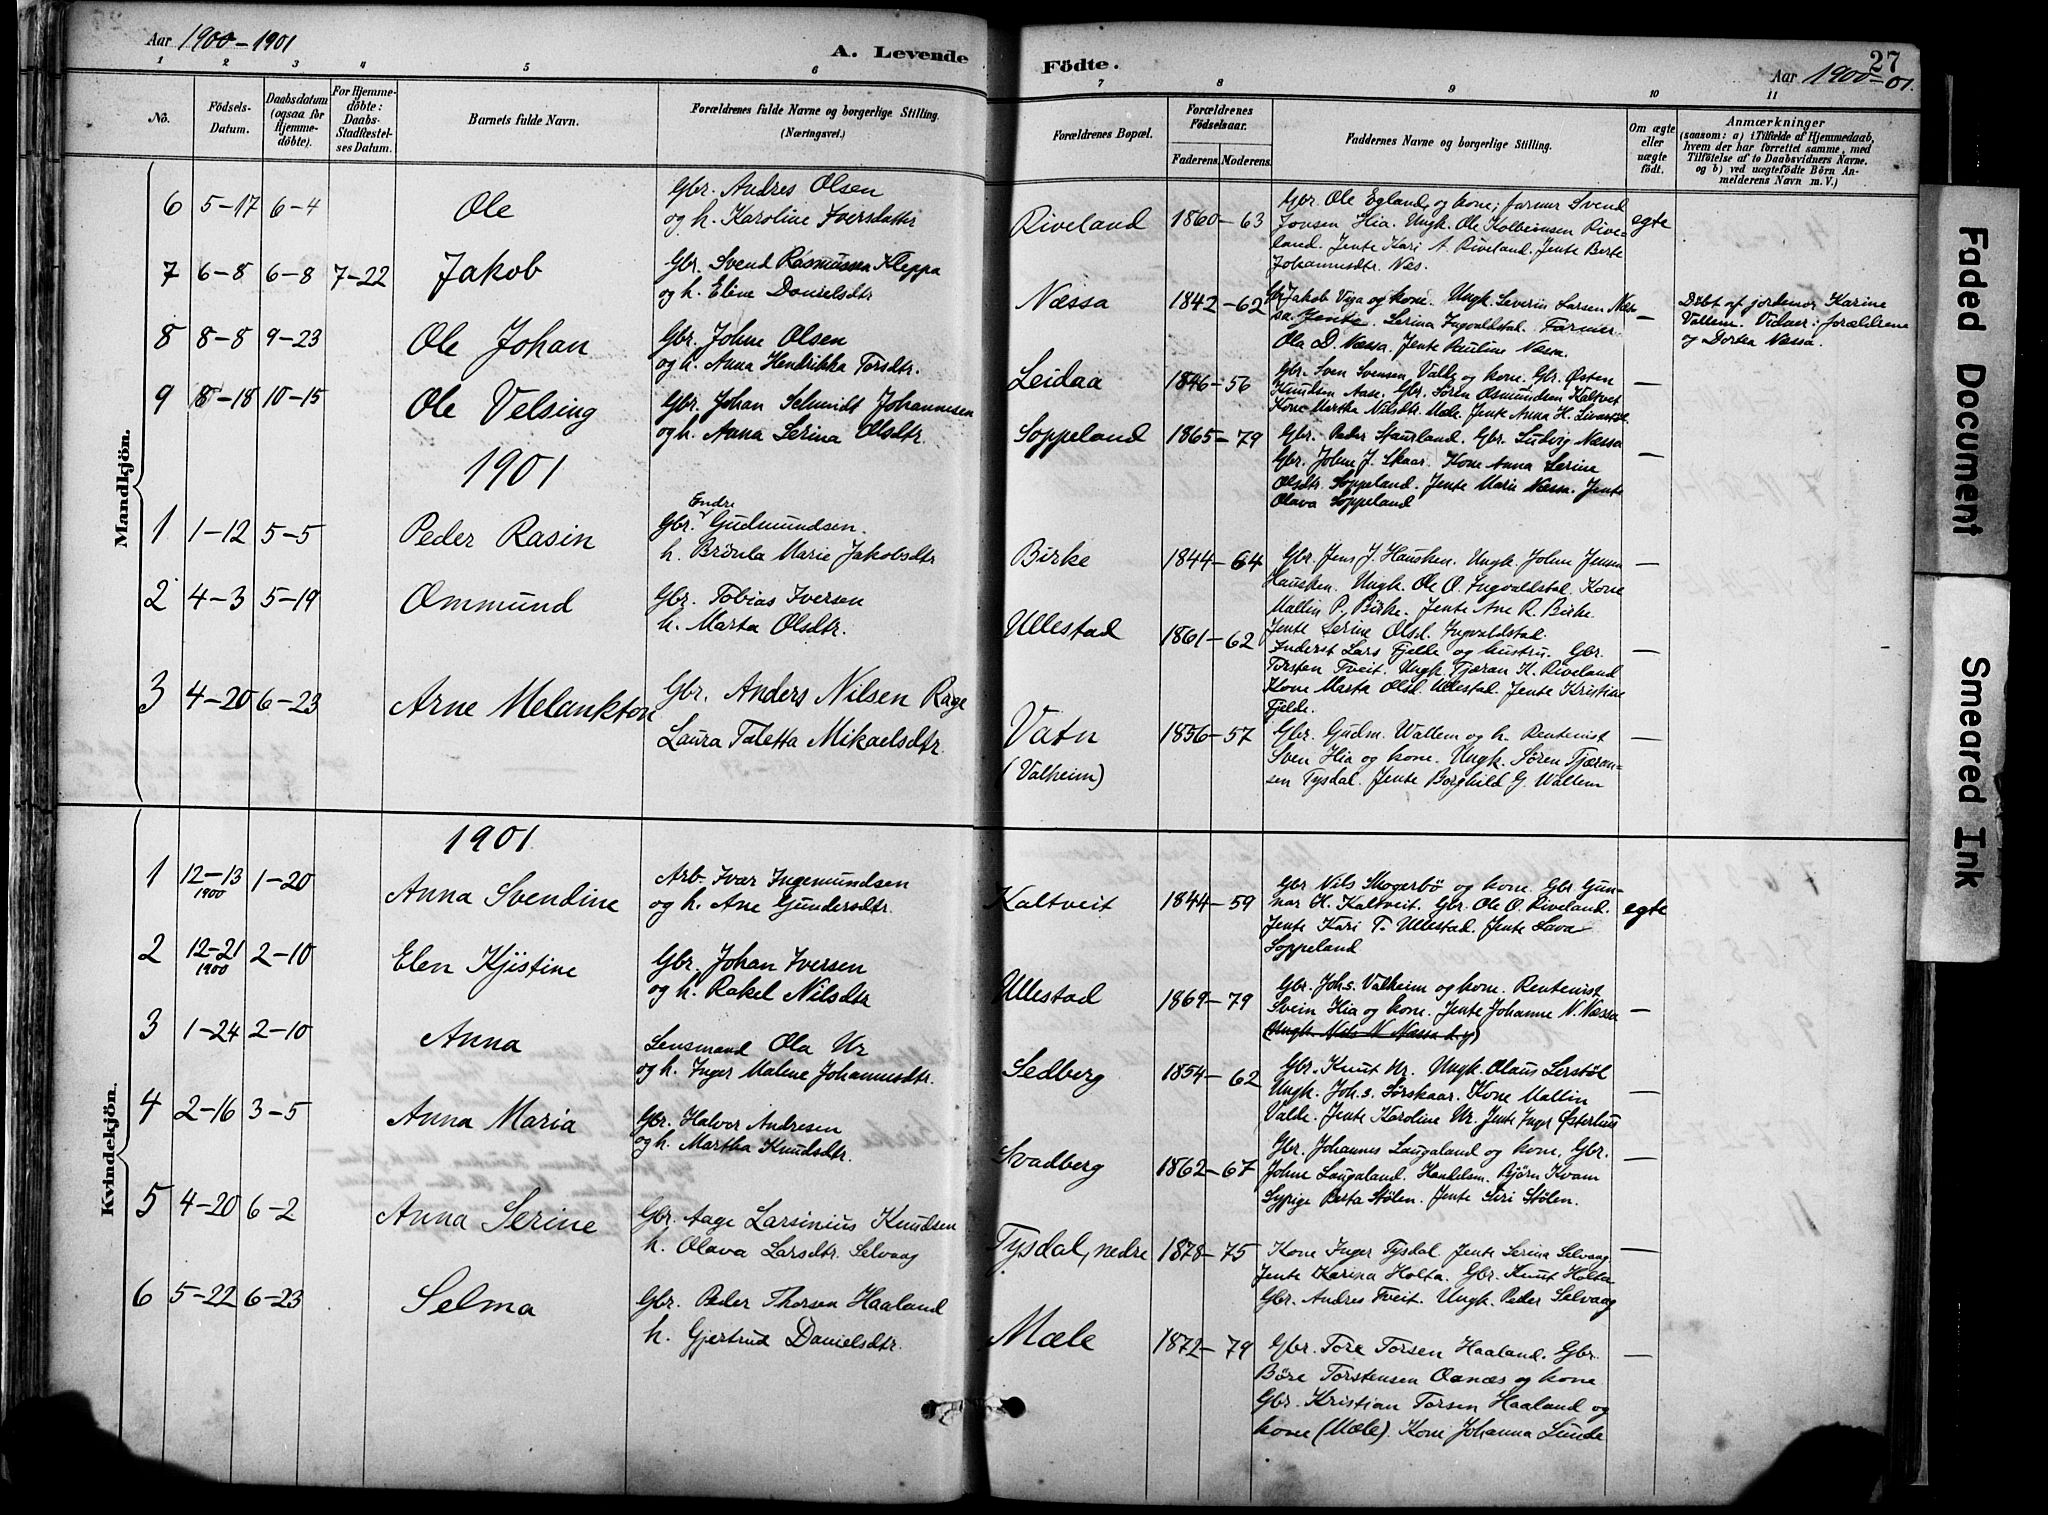 Aar 1900-1901
A. Levende
Födte.
27
Aar 1900-01.
1 2 3 4 5 6 7 8 9 10 11
No.
Födsels-Datum.
Daabsdatum (ogsaa for Hjemme-döbte).
For Hjemme-döbte: Daabs-Stadfæstel-ses Datum.
Barnets fulde Navn.
Forældrenes fulde Navne og borgerlige Stilling.
(Næringsvei.)
Forældrenes Bopæl.
Forældrenes Födselsaar.
Faderens. Moderens.
Faddernes Navne og borgerlige Stilling.
Om ægte eller uægte födt.
Anmærkninger
(saasom: a) i Tilfælde af Hjemmedaab,
hvem der har forrettet samme, med
Tilföielse af to Daabsvidners Navne.
og b) ved uægtefödte Börn An-
melderens Navn m. V.)
Mandkjön.
6 5-17 6-4 Ole
Gbr. Andres Olsen
og h. Karoline Iversdattr
Riveland 1860-63
Gbr. Ole Egland og kone; farmer Svend
Jonsen Hia. Ungk. Ole Kolbeinsen Rive-
land. Jente Kari A. Riveland. Jente Berte
Johannesdtr. Næs.
egte
7 6-8 6-8 7-22 Jakob
Gbr. Svend Rasmussen Kleppa
og h. Eline Danielsdtr
Næssa 1842-62
Gbr Jakob Viga og kone. Ungk. Severin Larsen Næs-
sa. Jente. Serina Ingvaldstad. Farmer
Ola D. Næssa. Jente Pauline Næssa.
—
Döbt af jordemor Karine
Vallem. Vidner: forældrene
og Dortea Næssa.
8 8-8 9-23 Ole Johan
Gbr. Johne Olsen
og h. Anna Hendrikka Torsdtr.
Leidaa 1846-56
Gbr. Sven Svensen Valle og kone. Gbr. Østen
Knudsen Aase. Gbr. Søren Osmundsen Kaltvet
Kone Martha Nilsdtr. Mæle. Jente Anna H.
—
9 8-18 10-15 Ole Velsing
Gbr. Johan Schmidt Johannesen
og h. Anna Serina Olsdtr.
Soppeland 1865-79
Gbr. Peder Staurland. Gbr. Ludvig Næssa
Gbr. Johne J. Skaar. Kone Anna Serine
Olsdtr. Soppeland. Jente Marie Næssa. Jente
Olava Soppeland
—
1901
1 1-12 5-5 Peder Rasin
Endre
Gbr. Gudmundsen.
h. Brönla Marie Jakobsdtr
Birke 1844-64
Gbr Jens J. Hausken. Ungk. Johne Jensen
Hausken. Ungk. Ole O. Ingvaldstad. Kone
Mallin P. Birke. Jente Ane R. Birke.
Jente Serine Olsd. Ingvaldstad.
—
2 4-3 5-19 Ommund
Gbr. Tobias Iversen
h. Marta Olsdtr.
Ullestad 1861-62
Inderst Lars Fjelde og hustru. Gbr.
Torsten Tveit. Ungk. Tjæran K. Riveland
Kone Marta Olsd. Ullestad. Jente Kristine
Fjelde.
—
3 4-20 6-23 Arne Melankton
Gbr. Anders Nilsen Rage
Laura Taletta Mikaelsdtr.
Vatn 1856-57
(Valheim)
Gbr. Gudm. Wallem og h. Rentenist
Sven Hia og kone. Ungk. Sören Tjæran-
sen Tysdal. Jente Borghild G. Wallem
—
Kvindekjön.
1901
1 12-13 1900 1-20 Anna Svendine
Arb. Ivar Ingemundsen
og h. Ane Gundersdtr.
Kaltveit 1844-59
Gbr Nils Skogerbö og kone. Gbr Gun-
nar H. Kaltveit. Gbr. Ole O. Riveland.
Jente Kari T. Ullestad. Jente Lava
Soppeland
egte
2 12-21 1900 2-10 Elen Kjistine
Gbr. Johan Iversen
og h. Rakel Nilsdtr
Ullestad 1869-79
Gbr. Johs. Valheim og kone. Rentenist
Svein Hia og kone. Jente Johanne N. Næssa
(Ungk. Nils N Næssa d.y)
—
3 1-24 2-10 Anna
Lensmand Ola Ur
og h. Inger Malene Johannesdtr.
Sedberg 1854-62
Gbr. Knut Ur. Ungk. Olaus Lerstöl
Ungk. Joh.s. Sörskaar. Kone Mallin
Valde. Jente Karoline Ur. Jente Inger Østerhus
—
4 2-16 3-5 Anna Maria
Gbr. Halvor Andresen
og h. Martha Knudsdtr.
Svadberg 1862-67
Gbr. Johannes Laugaland og kone. Gbr.
Johne Laugaland. Handelsm. Björn Kvam
Sypige Berta Stölen. Jente Siri Stölen.
—
5 4-20 6-2 Anna Serine
Gbr. Aage Larsinius Knudsen
h. Olava Larsdtr. Selvaag
Tysdal, nedre 1878-75
Kone Inger Tysdal. Jente Serina Selvaag
Jente Karina Holta. Gbr. Knut Holta
Gbr. Andres Tveit. Ungk. Peder Selvaag
—
6 5-22 6-23 Selma
Gbr. Peder Thorsen Haaland
h. Gjertrud Danielsdtr.
Mæle 1872-79
Gbr. Tore Torsen Haaland. Gbr.
Böre Torstensen Oanæs og kone
Gbr. Kristian Torsen Haaland og
kone (Mæle). Kone Johanna Lunde
—
Faded Document
Smeared Ink